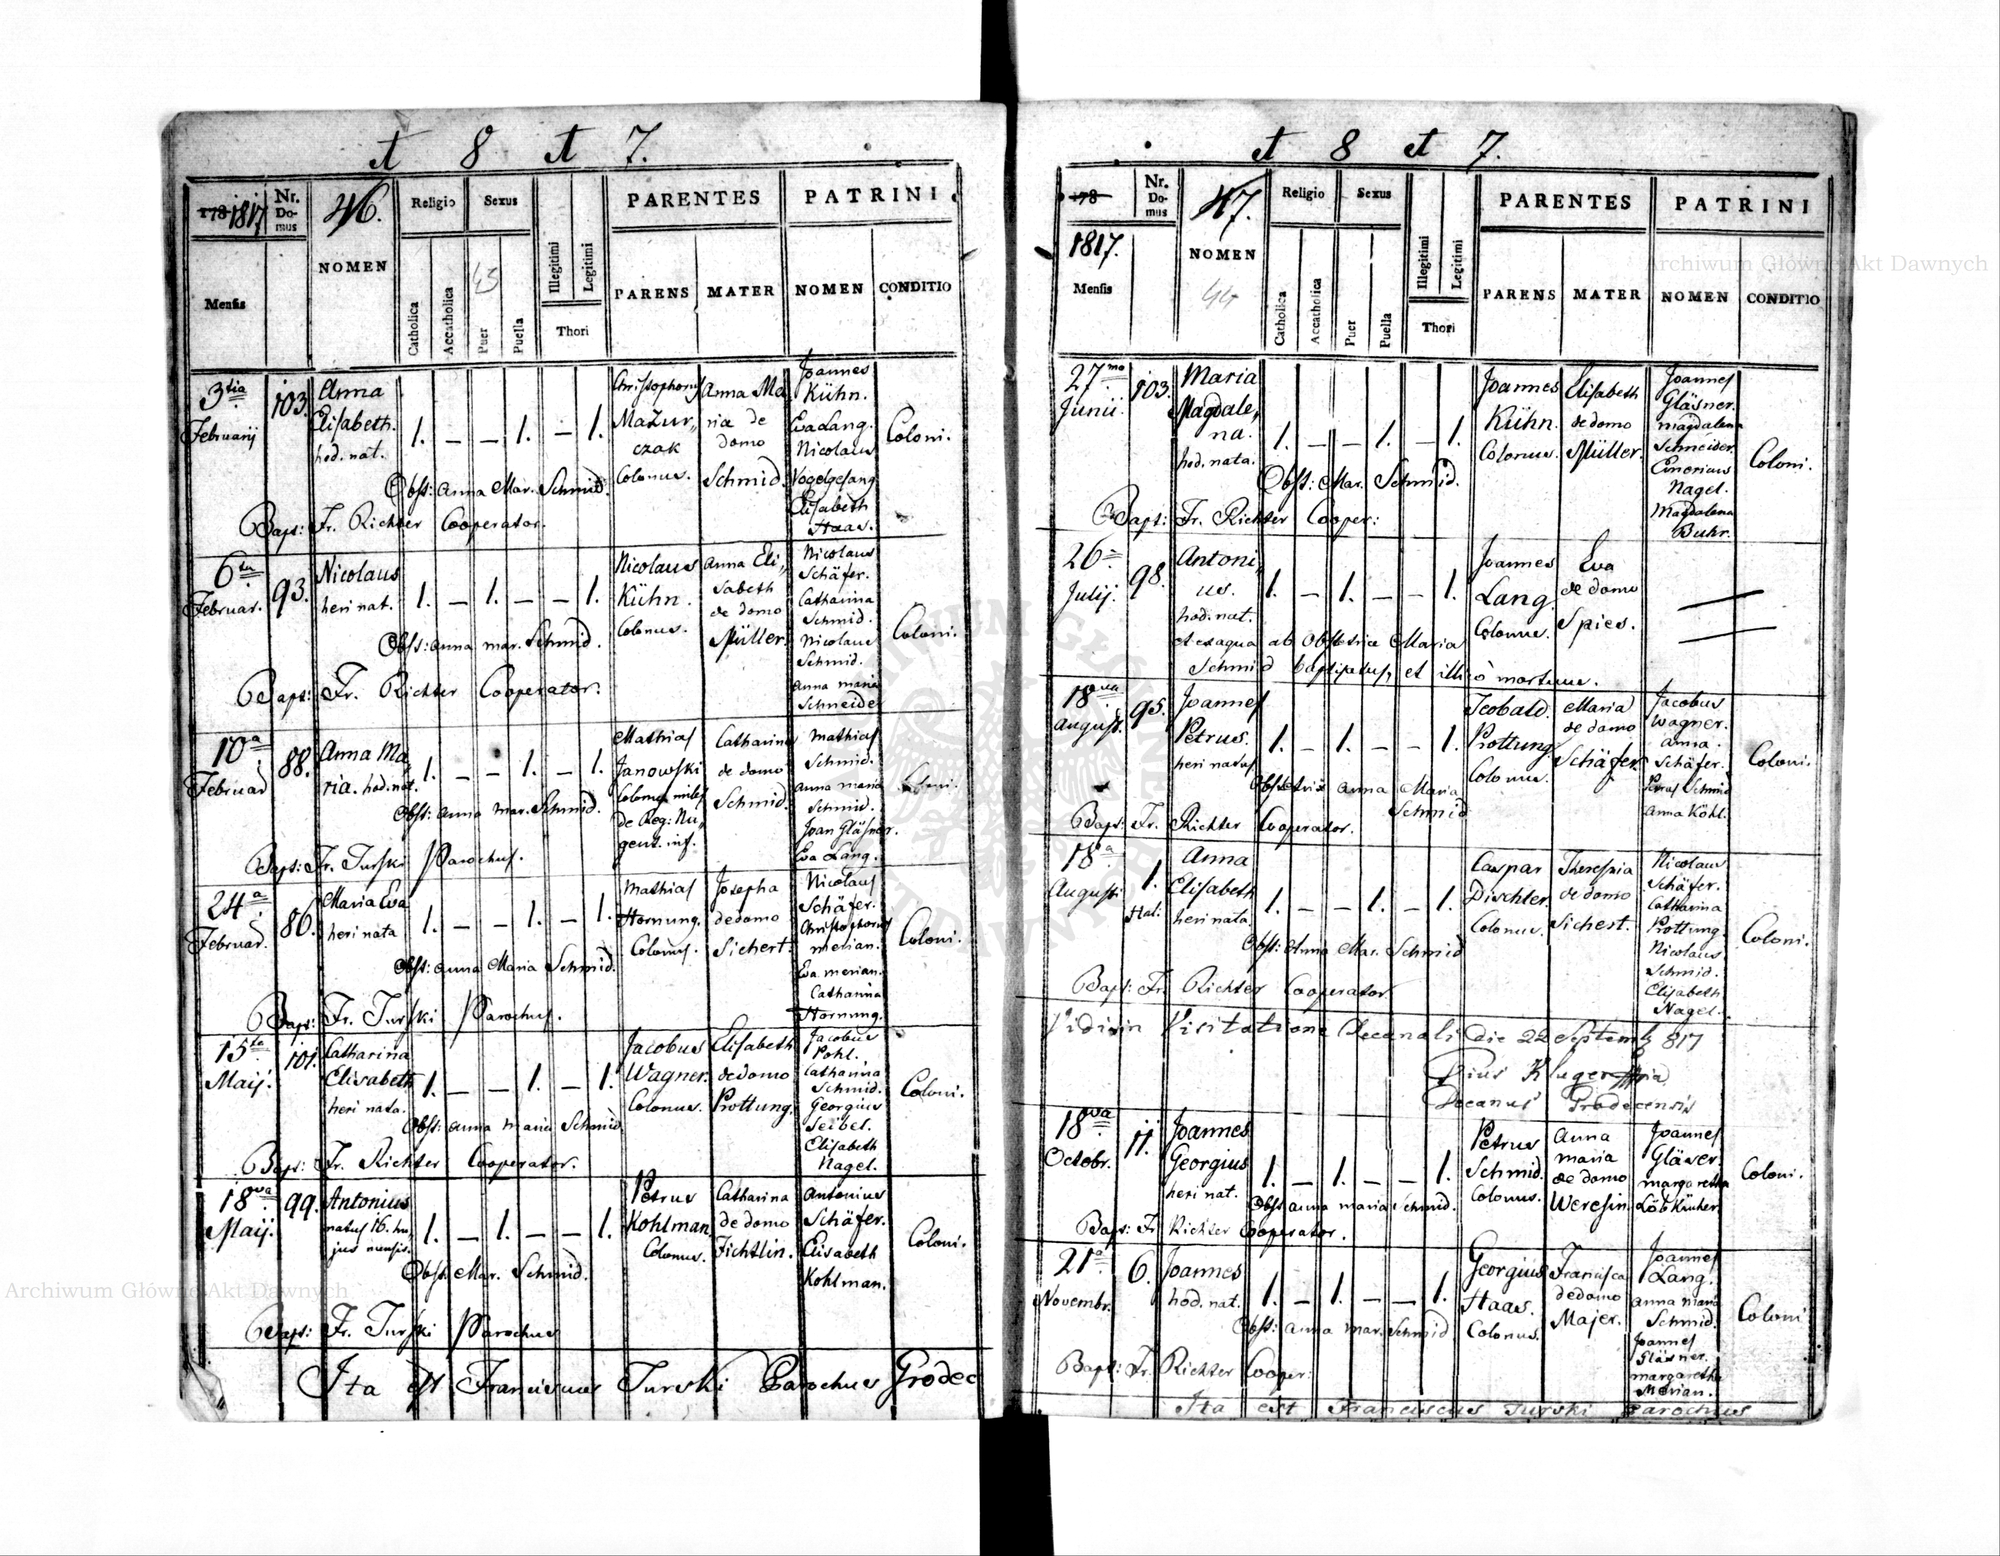 et 8 et 7.
178 1817
Nr. Domus
46.
NOMEN
Religio
Sexus
PARENTES
PATRINI
Mensis
Catholica
Accatholica
45
Puer
Puella
Illegitimi
Legitimi
Thori
PARENS
MATER
NOMEN
CONDITIO
3tia Februarij
103.
Anna
Elisabeth.
hod. nat.
1. – – 1. – 1.
Christophorus
Mazur,,
czak
Colonus.
Anna Ma
ria de
domo
Schmid.
Joannes
Kühn.
Eva Lang.
Nicolaus
Vogelgesang
Elisabeth
Haas.
Coloni.
Obst: Anna Mar. Schmid.
Bapt: Fr. Richter Cooperator.
6ta Februar.
93.
Nicolaus
heri nat.
1. – 1. – – 1.
Nicolaus
Kühn.
Colonus.
Anna Eli,,
sabeth
de domo
Müller.
Nicolaus
Schäfer.
Catharina
Schmid.
Nicolaus
Schmid.
anna maria
Schneider
Coloni.
Obst: anna mar. Schmid.
Bapt: Fr. Richter Cooperator.
10a Februar
88.
Anna Ma,
ria. hod. nat.
1. – – 1. – 1.
Mathias
Janowski
Colonus miles
de Reg: Nu,
gent. inf.
Catharina
de domo
Schmid.
Mathias
Schmid.
anna maria
Schmid.
Joan Gläsner.
Eva Lang.
Coloni.
Obst: anna mar. Schmid.
Bapt: Fr. Turski Parochus.
24a Februar.
86.
Maria Eva
heri nata
1. – – 1. – 1.
Mathias
Hornung.
Colonus.
Josepha
de domo
Sichert.
Nicolaus
Schäfer.
Christophorus
merian.
Eva merian.
Catharina
Hornung.
Coloni.
Obst: anna Maria Schmid.
Bapt: Fr. Turski Parochus.
15ta Maij.
101.
Catharina
Elisabeth
heri nata.
1. – – 1. – 1.
Jacobus
Wagner.
Colonus.
Elisabeth
de domo
Prottung.
Jacobus
Pohl.
Catharina
Schmid.
Georgius
Seibel.
Elisabeth
Nagel.
Coloni.
Obst: anna maria Schmid.
Bapt: Fr. Richter Cooperator.
18va Maij.
99.
Antonius
natus 16. hu,
jus mensis.
1. – 1. – – 1.
Petrus
Kohlman,
Colonus.
Catharina
de domo
Fichtlin.
Antonius
Schäfer.
Elisabeth
Kohlman.
Coloni.
Obst: Mar. Schmid.
Bapt: Fr. Turski Parochus
Ita est Franciscus Turski Parochus Grodec
et 8 et 7.
178
1817.
Mensis
Nr. Domus
47.
NOMEN
44
Religio
Sexus
PARENTES
PATRINI
Catholica
Accatholica
Puer
Puella
Illegitimi
Legitimi
Thori
PARENS
MATER
NOMEN
CONDITIO
27mo Junii.
103.
Maria
Magdale,
na.
hod. nata.
1. – – 1. – 1.
Joannes
Kühn.
Colonus.
Elisabeth
de domo
Müller.
Joannes
Gläsner.
magdalena
Schneider.
Emericus
Nagel.
Magdalena
Buhr.
Coloni.
Obst: Mar. Schmid.
Bapt: Fr. Richter Cooper:
26ta Julij.
98.
Antoni,
us.
hod. nat.
1. – 1. – – 1.
Joannes
Lang.
Colonus.
Eva
de domo
Spies.
et ex aqua ab Obstetrice Maria
Schmid baptisatus, et illico mortuus.
18va August.
95.
Joannes
Petrus.
heri natus
1. – 1. – – 1.
Teobald.
Prottung
Colonus.
Maria
de domo
Schäfer.
Jacobus
Wagner.
anna
Schäfer.
Petrus Schmid
anna Köhl.
Coloni.
Obstetrix anna Maria
Schmid
Bapt: Fr. Richter Cooperator.
18a Augusti
1.
Hal:
Anna
Elisabeth
heri nata
1. – – 1. – 1.
Caspar
Dischler.
Colonus.
Theressia
de domo
Sichert.
Nicolaus
Schäfer.
Catharina
Prottung.
Nicolaus
Schmid.
Elisabeth
Nagel.
Coloni.
Obst: Anna Mar. Schmid
Bapt: Fr. Richter Cooperator
Vidi in Visitatione Decanali die 22 Septemb 817
Pius Kluger
Decanus Grodecensis
18va Octobr.
11.
Joannes
Georgius
heri nat.
1. – 1. – – 1.
Petrus
Schmid.
Colonus.
Anna
maria
de domo
Weresin.
Joannes
Gläser.
margaretha
Coloni.
Obst anna maria Schmid.
Bapt: Fr Richter Cooperator.
21a Novembr.
6.
Joannes
hod. nat.
1. – 1. – – 1.
Georgius
Haas.
Colonus.
Francisca
de domo
Majer.
Joannes
Lang.
anna maria
Schmid.
Joannes
Gläsner.
margaretha
Merian.
Coloni
Obst: anna mar. Schmid
Bapt: Fr. Richter Cooper:
Ita est Franciscus Turski Parochus
Archiwum Główne Akt Dawnych
Archiwum Główne Akt Dawnych